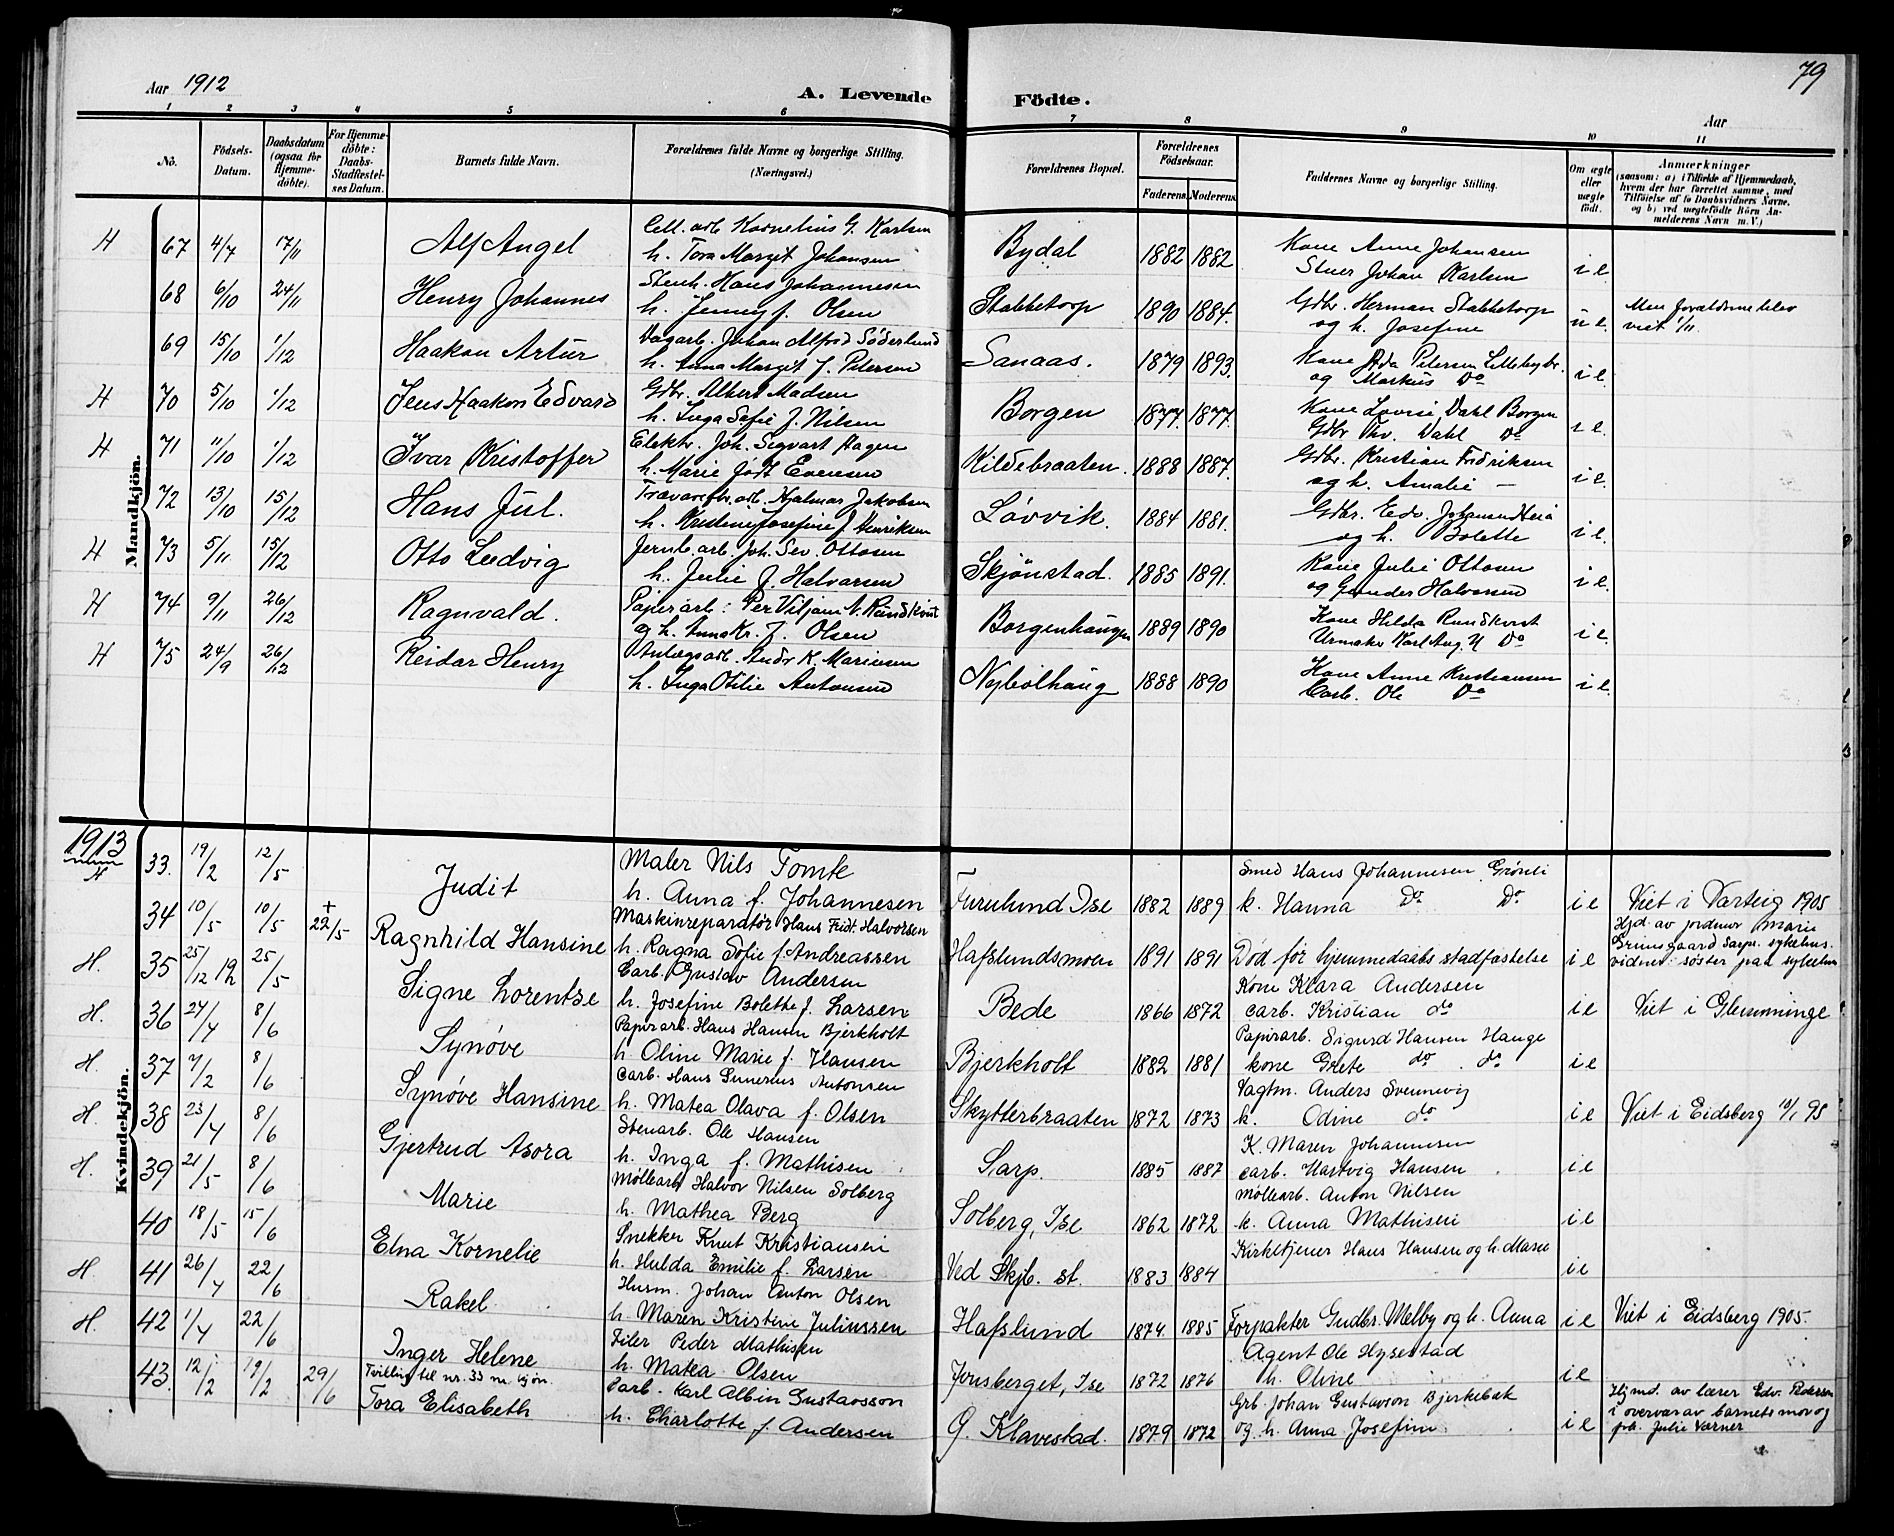 79
Aar 1912
A. Levende Födte.
Aar
1 2 3 4 5 6 7 8 9 10 11
No.
Födsels-Datum.
Daabsdatum (ogsaa for Hjemme-döbte).
For Hjemme-döbte: Daabs-Stadfæstel-ses Datum.
Barnets fulde Navn.
Forældrenes fulde Navne og borgerlige Stilling. (Næringsvei.)
Forældrenes Bopæl.
Forældrenes Födselsaar.
Faderens. Moderens.
Faddernes Navne og borgerlige Stilling.
Om ægte eller uægte födt.
Anmærkninger
(saasom: a) i Tilfælde af Hjemmedaab, hvem der har forrettet samme, med Tilföielse af to Daabsvidners Navne, og b) ved uægtefödte Börn An-melderens Navn m. V.)
Mandkjön.
H 67 4/7 17/11 Alf Angel Cell. arb Kornelius G. Karlsen
h. Tora Marget Johansen Bydal 1882 1882 Kone Anne Johansen
Stuer Johan Karlsen i e.
68 6/10 24/11 Henry Johannes Stenh. Hans Johannesen
h. Jenny f. Olsen Stabbetorp 1890 1884. Gdbr. Herman Stabbetorp
og h. Josefine u e. Men forældrene blev
viet 1/11.
69 15/10 1/12 Haakon Artur Vagarb. Johan Alfred Söderlund
h. Anna Marget f. Petersen Sanaas. 1879 1893. Kone Ada Petersen Lilleby br.
og Markus Do i e.
H 70 5/10 1/12 Jens Haakon Edvard Gdbr. Albert Madsen
h. Inga Sofie f. Nilsen Borgen 1877. 1877. Kone Lovise Dahl Borgen
Gdbr Thv. Dahl Do i e.
H 71 11/10 1/12 Ivar Kristoffer Elektr. Joh. Segvart Hagen
h. Marie født Evensen Kildebraaten. 1888 1887. Gdbr. Kristian Fredriksen
og h. Amalie — i e.
72 13/10 15/12 Hans Jul. Trævarefbr. arb. Hjalmar Jakobsen
h. Kristine Josefine f. Henriksen Løvvik. 1884 1881. Gdbr. Edv. Johansen Heia
og h. Bolette i e.
H 73 5/11 15/12 Otto Ludvig Jernb. arb. Joh. Sev. Ottosen
h. Julie f. Halvorsen Skjønstad. 1885 1891. Kone Julie Ottosen
og Gunder Halvorsen i e.
H 74 9/11 26/12 Ragnvald. Papirarb: Per Viljam N. Rundkvist
og h. Anna Kr. f. Olsen Borgenhaugen 1889 1890 Kone Hilda Rundkvist
Urmaker Karl Aug. N Do i e.
H 75 24/9 26/12 Reidar Henry Anlægsarb. Andr K. Mariusen
h. Inga Otilie Antonsen Nybølhaug 1888 1890 Kone Anne Kristiansen
Carb. Ole Do i e.
1913
Kvindekjön.
H 33. 19/2 12/5 Judit Maler Nils Tomte
h. Anna f. Johannesen Furulund Ise 1882 1889 Smed Hans Johannesen Grønli
k. Hanna Do Do i e Viet i Varteig 1905
34 10/5 10/5 + 22/5 Ragnhild Hansine Maskinreparatør Hans Fridt. Halvorsen
h. Ragna Sofie f. Andreassen Hafslundsmoen 1891 1891 Død før hjemmedaabs stadfæstelse i e Hjd. av jordmor Marie
Grimsgaard Sarp. sykehus.
vidner: søster paa sykehus
H. 35 25/12 12 25/5 Signe Lorentze Carb. Gustav Andersen
h. Josefine Bolette f. Larsen Bede 1866 1872 Kone Klara Andersen
carb. Kristian do i e Viet i Glemminge
H. 36 24/4 8/6 Synøve Papirarb. Hans Hansen Bjerkholt
h. Oline Marie f. Hansen Bjerkholt 1882 1881 Papirarb. Sigurd Hansen Hauge
kone Grete do. do i e
H. 37 7/2 8/6 Synøve Hansine Carb. Hans Gunerius Antonsen
h. Matea Olava f. Olsen Skytterbraaten 1872 1873 Vagtm. Anders Svennevig
k. Odine do i e Viet i Eidsberg 10/1 95
H. 38 23/4 8/6 Gjertrud Asora Stenarb. Ole Hansen
h. Inga f. Mathisen Sarp. 1885 1887 K. Maren Johannesen
carb. Hartvig Hansen i e
H. 39 21/5 8/6 Marie Møllearb Halvor Nilsen Solberg
h. Mathea Berg Solberg, Ise 1862 1872 Møllearb. Anton Nilsen
k. Anna Mathisen i e
40 18/5 15/6 Elna Kornelie Snekker Knut Kristiansen
h. Hulda Emilie f. Larsen Ved Skjb. st. 1883 1884 Kirketjener Hans Hansen og h. Marie
i e
H. 41 26/4 22/6 Rakel Husm. Johan Anton Olsen
h. Maren Kristine Juliussen Hafslund 1874. 1885 Forpakter Gudbr. Melby og h. Anna i e Viet i Eidsberg 1905.
H. 42 1/4 22/6 Inger Helene Filer Peder Mathisen
h. Matea Olsen Jonsberget, Ise 1872 1876 Agent Ole Hysestad
h. Oline i e
43. 12/2 19/2 29/6 Tvilling til nr. 33 m. kjøn.
Tora Elisabeth Carb. Karl Albin Gustavsson
h. Charlotte f. Andersen G. Klavestad. 1879 1872 Grb. Johan Gustavson Bjerkebæk
og h. Anna Josefine i e Hjmd. av lærer Edv. Pedersen
i overvær av barnets mor og
frk. Julie Varner